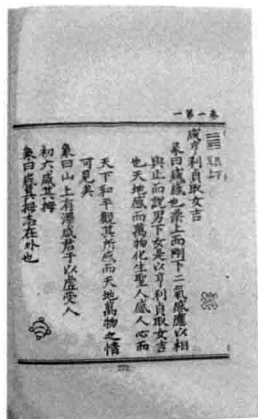 一第一卷
咸亨利貞取女吉
彖曰咸感也柔上而剛下二氣感應以相
與止而說男下女是以亨利貞取女吉
也天地感而萬物化生聖人感人心而
天下和平觀其所感而天地萬物之情
可見矣
象曰山上有澤咸君子以虛受人
初六咸其拇
象曰咸其拇志在外也